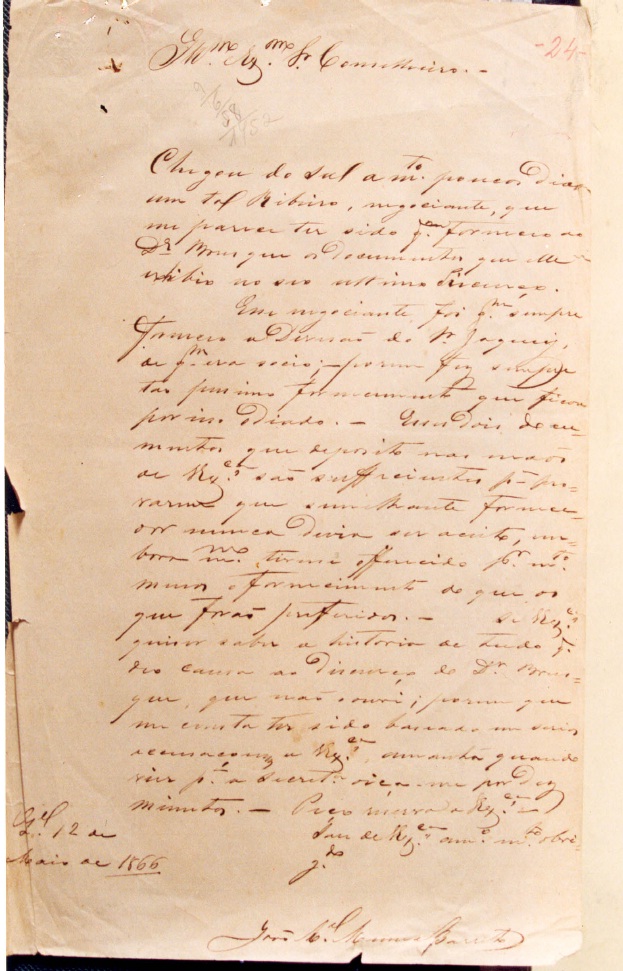 Illmo. Exmo. Sr. Conselheiro. -
-24-
Chegou do Sul a mto. poucos dias
um tal Ribeiro, negociante, que
me parece ter sido qm. forneceo ao
Dr. Brusque os documentos que elle
exhibio no seo ultimo discurço.
Esse negociante, foi qm. sempre
forneceo a Divisão do Sr. Jaquez,
de qm. era socio; - porem fez sempre
tão pessimo fornecimento que ficou
por isso odiado. - Esses dois docu-
mentos que deposito nas mãos
de Exa. são sufficientes pa. pro-
varme que semilhante fornece-
dor nunca devia ser aceito, em-
bora mmo. tivesse offerecido pr. mto.
menos o fornecimento do que os
que forão preferidos. - Se Exa.
quiser saber a historia de tudo q.
deo causa ao discurço do Dr. Brus-
que, que não ouvi; porem que
me consta ter sido baseado em serias
accusaçoens a Exa., amanhã quando
vier pa. a Secreta. oiça-me por dez
minutos. - Peço reserva a Exa. -
Sou de Exa. amo. mto. obri-
gdo.
12 de
Maio de 1866
João Ml. Menna Barreto